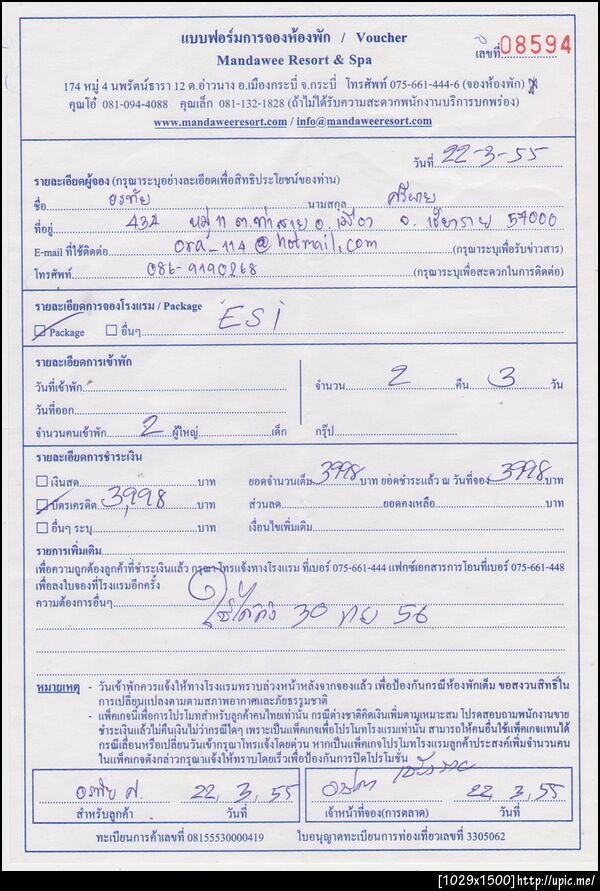 แบบฟอร์มการจองห้องพัก / Voucher
Mandawee Resort & Spa
เลขที่ 08594
174 หมู่ 4 นพรัตน์ธารา 12 ต.อ่าวนาง อ.เมืองกระบี่ จ.กระบี่ โทรศัพท์ 075-661-444-6 (จองห้องพัก)
คุณโอ๋ 081-094-4088 คุณเล็ก 081-132-1828 (ถ้าไม่ได้รับความสะดวกพนักงานบริการบกพร่อง)
www.mandaweeresort.com / info@mandaweeresort.com
วันที่ 22-3-55
รายละเอียดผู้จอง (กรุณาระบุอย่างละเอียดเพื่อสิทธิประโยชน์ของท่าน)
ชื่อ อรทัย นามสกุล
ที่อยู่ 434 หมู่ 11 ต.ท่าสาย อ.เมือง จ.เชียงราย 57000
E-mail ที่ใช้ติดต่อ ora_114@hotmail.com (กรุณาระบุเพื่อรับข่าวสาร)
โทรศัพท์ 086-9190268 (กรุณาระบุเพื่อสะดวกในการติดต่อ)
รายละเอียดการจองโรงแรม / Package ESI
Package อื่นๆ
รายละเอียดการเข้าพัก
วันที่เข้าพัก จำนวน 2 คืน 3 วัน
วันที่ออก
จำนวนคนเข้าพัก 2 ผู้ใหญ่ เด็ก กรุ๊ป
รายละเอียดการชำระเงิน
เงินสด บาท ยอดจำนวนเต็ม 3998 บาท ยอดชำระแล้ว ณ วันที่จอง 3998 บาท
บัตรเครดิต 3,998 บาท ส่วนลด ยอดคงเหลือ บาท
อื่นๆ ระบุ บาท เงื่อนไขเพิ่มเติม
รายการเพิ่มเติม
เพื่อความถูกต้องลูกค้าที่ชำระเงินแล้ว กรุณาโทรแจ้งทางโรงแรม ที่เบอร์ 075-661-444 แฟกซ์เอกสารการโอนที่เบอร์ 075-661-448
เพื่อลงใบจองที่โรงแรมอีกครั้ง
ความต้องการอื่นๆ ใช้ได้ถึง 30 กย 56
หมายเหตุ - วันเข้าพักควรแจ้งให้ทางโรงแรมทราบล่วงหน้าหลังจากจองแล้ว เพื่อป้องกันกรณีห้องพักเต็ม ขอสงวนสิทธิ์ใน
การเปลี่ยนแปลงตามตามสภาพอากาศและภัยธรรมชาติ
- แพ็คเกจนี้เพื่อการโปรโมทสำหรับลูกค้าคนไทยเท่านั้น กรณีต่างชาติคิดเงินเพิ่มตามเหมาะสม โปรดสอบถามพนักงานขาย
ชำระเงินแล้วไม่คืนเงินไม่ว่ากรณีใดๆ เพราะเป็นแพ็คเกจเพื่อโปรโมทโรงแรมเท่านั้น สามารถให้คนอื่นใช้แพ็คเกจแทนได้
กรณีเลื่อนหรือเปลี่ยนวันเข้ากรุณาโทรแจ้งโดยด่วน หากเป็นแพ็คเกจโปรโมทโรงแรมลูกค้าประสงค์เพิ่มจำนวนคน
ในแพ็คเกจดังกล่าวกรุณาแจ้งให้ทราบโดยเร็วเพื่อป้องกันการปิดโปรโมชั่น
อรทัย ศ. 22, 3, 55 22, 3, 55
สำหรับลูกค้า วันที่ เจ้าหน้าที่จอง(การตลาด) วันที่
ทะเบียนการค้าเลขที่ 08155530000419 ใบอนุญาตทะเบียนการท่องเที่ยวเลขที่ 3305062
[1029x1500]http://upic.me/